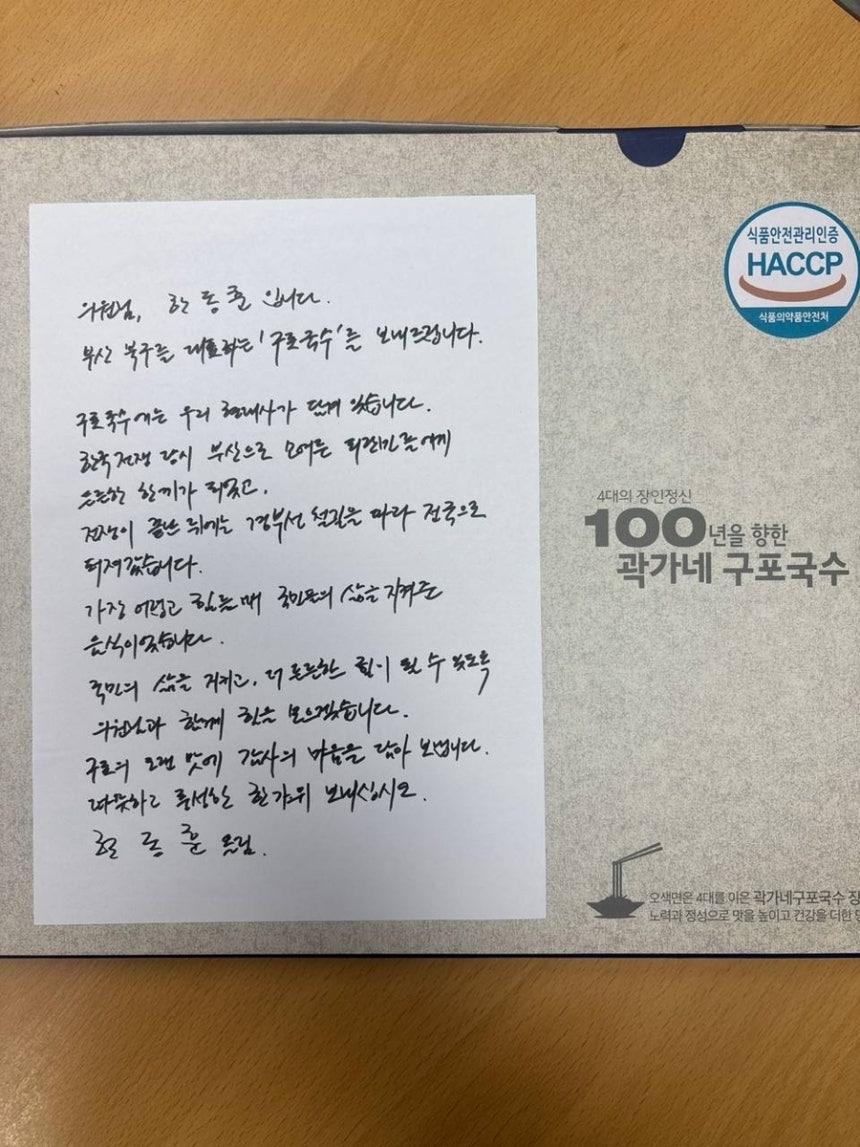 의원님, 한동훈 입니다.
부산 북구를 대표하는 '구포국수'를 보내드립니다.
구포국수에는 우리 현대사가 담겨 있습니다.
한국전쟁 당시 부산으로 모여든 피란민들에게
든든한 한끼가 되었고,
전쟁이 끝난 뒤에는 경부선 철길을 따라 전국으로
퍼져갔습니다.
가장 어렵고 힘든 때 국민들의 삶을 지켜준
음식이었습니다.
국민의 삶을 지키고, 더 든든한 힘이 될 수 있도록
의원님과 함께 힘을 모으겠습니다.
구포의 오랜 맛에 감사의 마음을 담아 보냅니다.
따뜻하고 풍성한 한가위 보내십시오.
한동훈 올림.
식품안전관리인증
HACCP
식품의약품안전처
4대의 장인정신
100년을 향한
곽가네 구포국수
오색면은 4대를 이은 곽가네구포국수
노력과 정성으로 맛을 높이고 건강을 더한